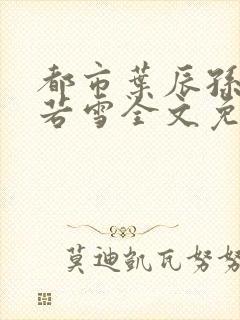 都市葉辰孫
若雪全文免
莫迪凱瓦努努